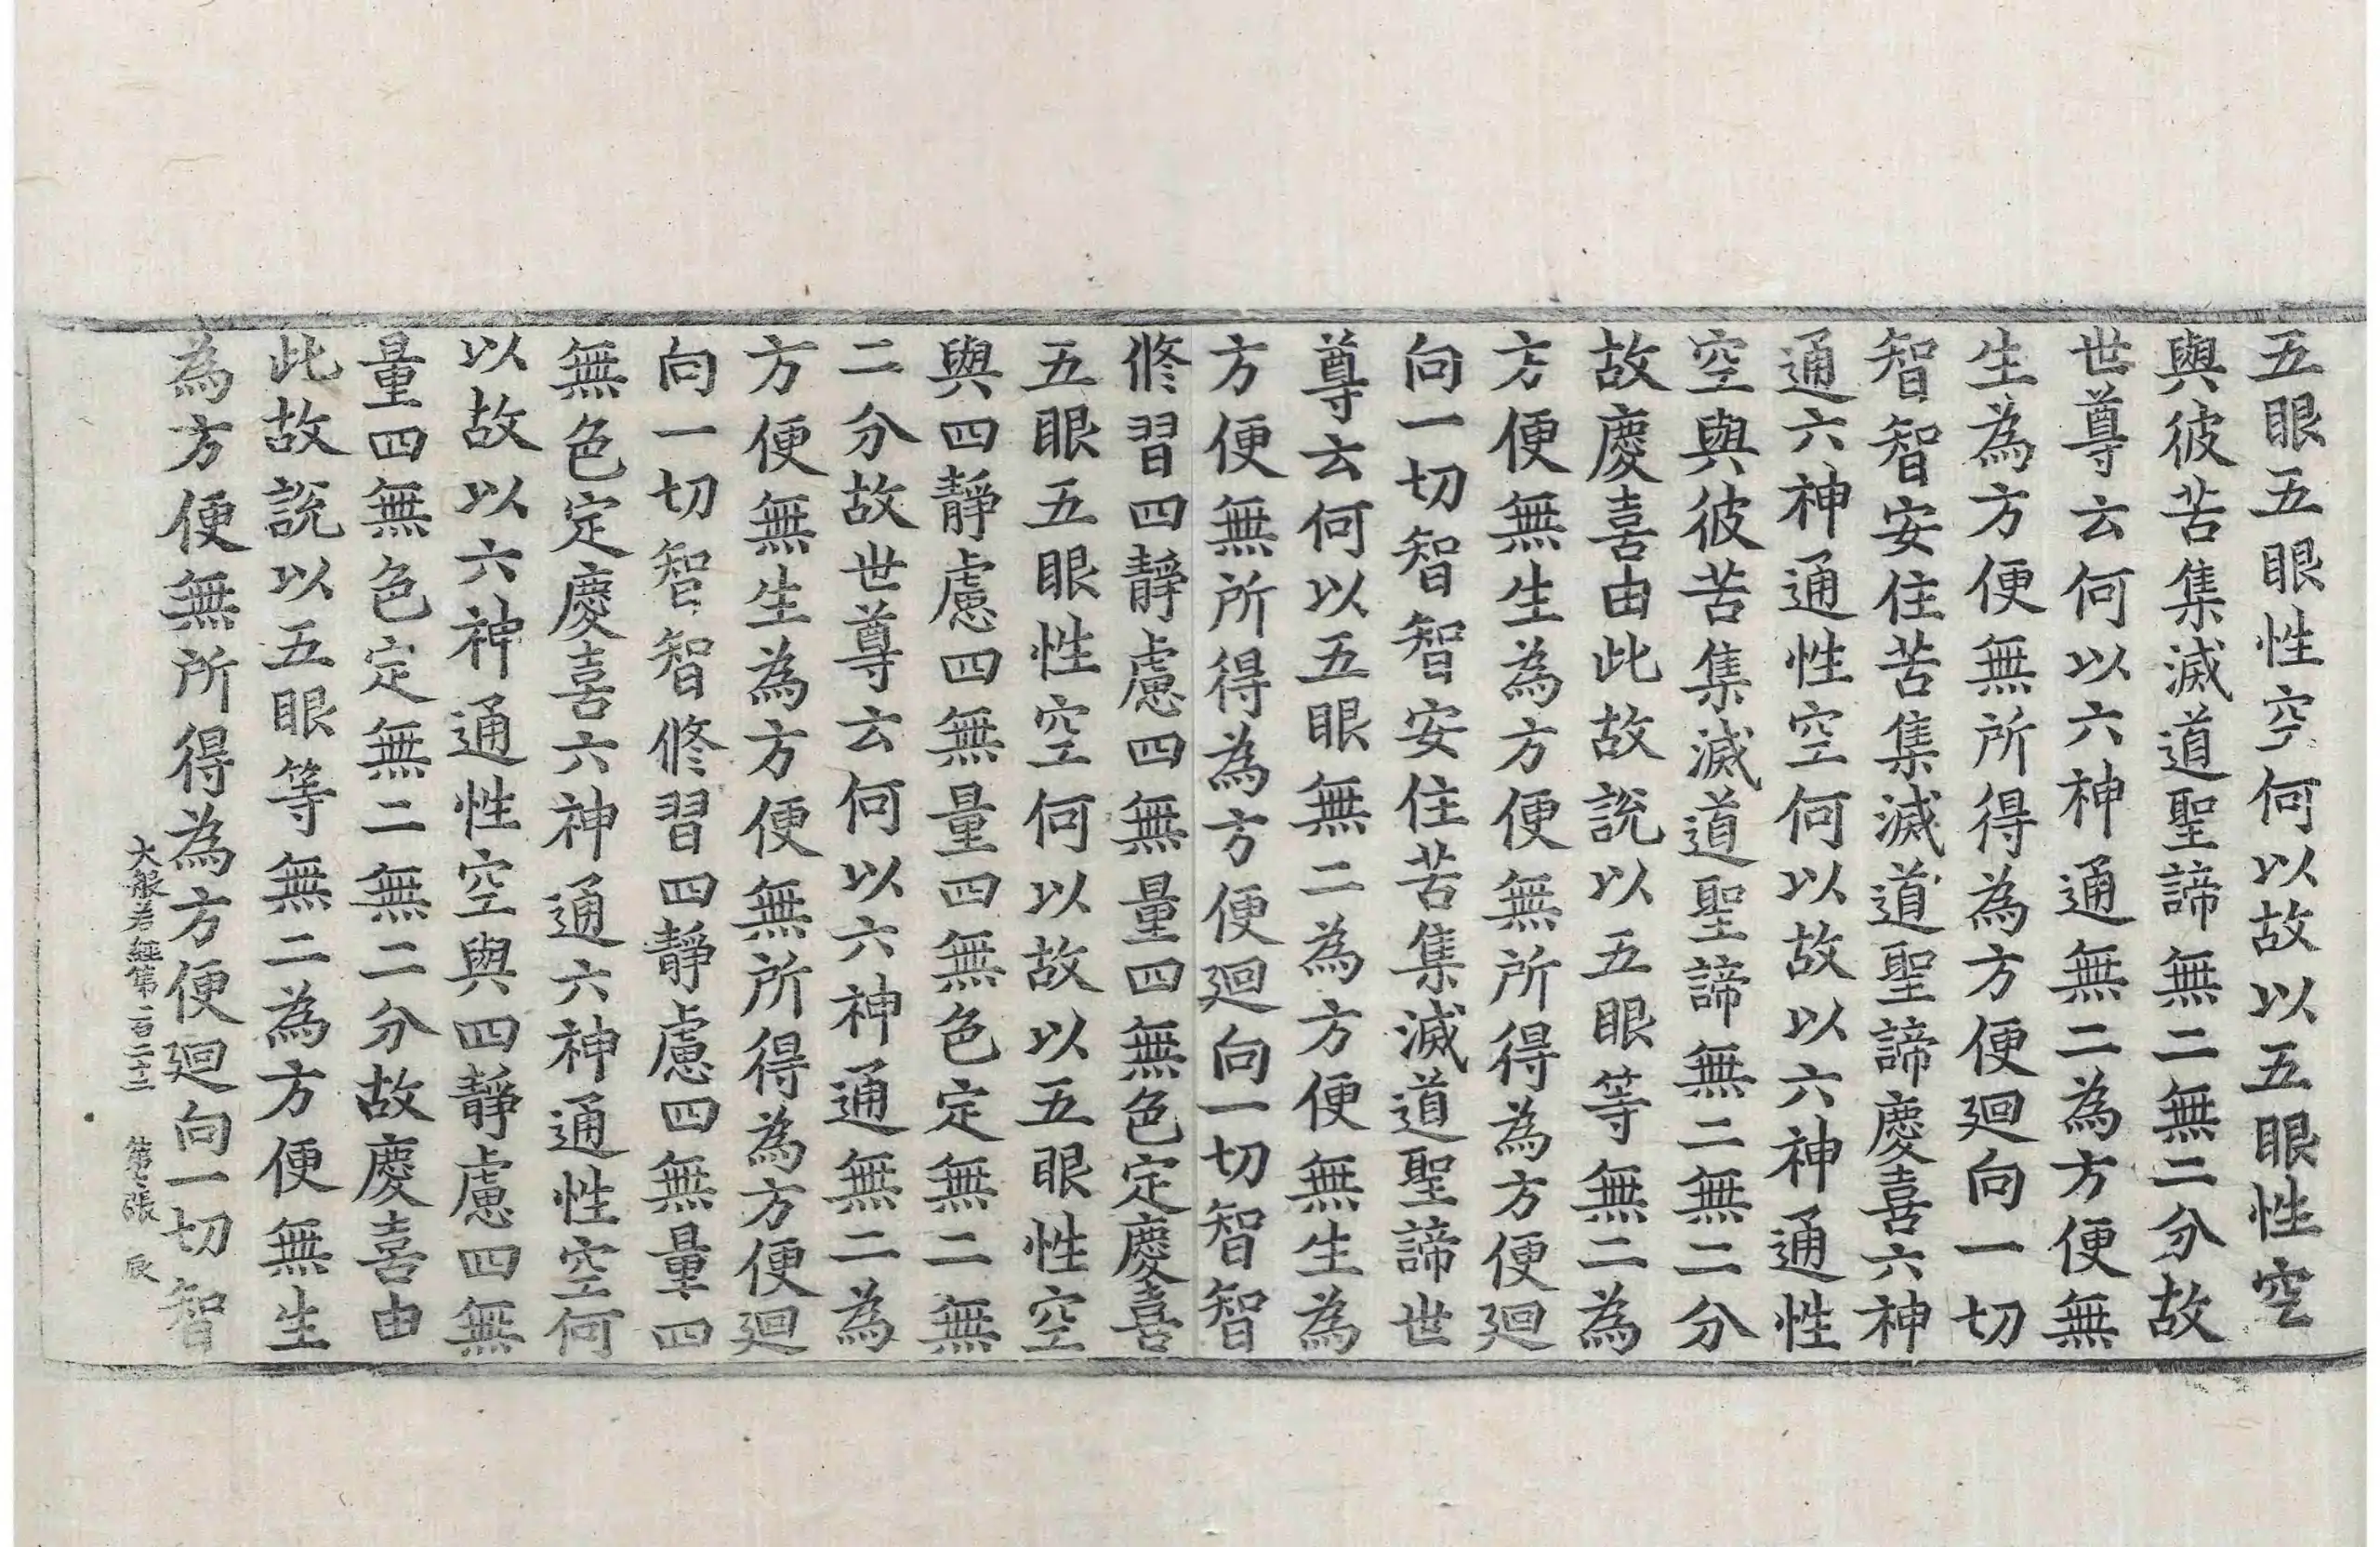 五眼五眼性空何以故以五眼性空
與彼苦集滅道聖諦無二無二分故
世尊云何以六神通無二為方便無
生為方便無所得為方便迴向一切
智智安住苦集滅道聖諦慶喜六神
通六神通性空何以故以六神通性
空與彼苦集滅道聖諦無二無二分
故慶喜由此故說以五眼等無二為
方便無生為方便無所得為方便迴
向一切智智安住苦集滅道聖諦世
尊云何以五眼無二為方便無生為
方便無所得為方便迴向一切智智
修習四靜慮四無量四無色定慶喜
五眼五眼性空何以故以五眼性空
與四靜慮四無量四無色定無二無
二分故世尊云何以六神通無二為
方便無生為方便無所得為方便迴
向一切智智修習四靜慮四無量四
無色定慶喜六神通六神通性空何
以故以六神通性空與四靜慮四無
量四無色定無二無二分故慶喜由
此故說以五眼等無二為方便無生
為方便無所得為方便迴向一切智
大般若經第一百二十二 第七張 辰